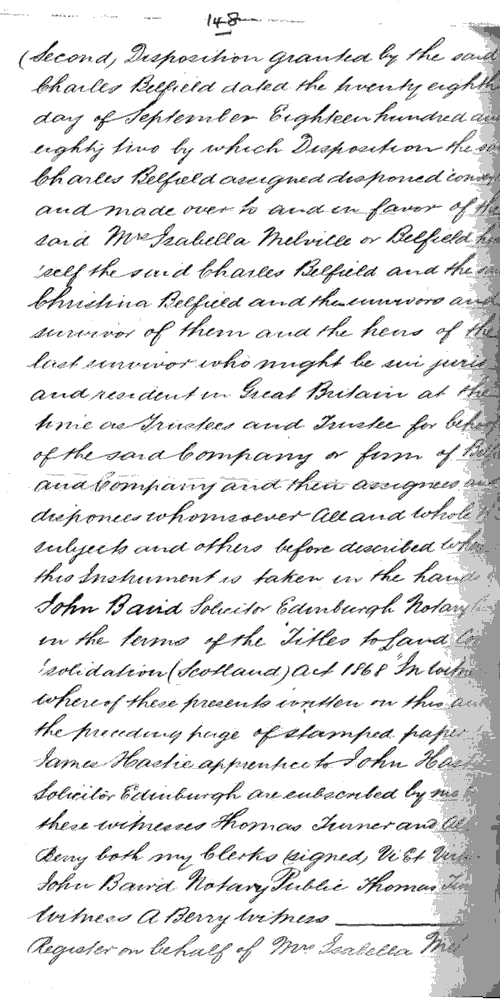 148
(Second, Disposition granted by the said
Charles Belfield dated the twenty eighth
day of September Eighteen hundred and
eighty two by which Disposition the sa
Charles Belfield assigned disponed conv
and made over to and in favor of the
said Mrs Isabella Melville or Belfield h
'self the said Charles Belfield and the sa
Christina Belfield and the survivors and
survivor of them and the heirs of the
last survivor who might be sui juris
and resident in Great Britain at the
time as Trustees and Trustee for behoof
of the said Company or firm of Bel
and Company and their assignees and
disponees whomsoever All and whole
subjects and others before described
this Instrument is taken in the hand
John Baird Solicitor Edinburgh Notary
in the terms of the "Titles to Land Con
'solidation (Scotland) Act 1868" In witn
whereof these presents written on this and
the preceding page of stamped paper
James Hastie apprentice to John Hast
Solicitor Edinburgh are subscribed by me
these witnesses Thomas Turner and
Berry both my Clerks (signed, Vi Et
John Baird Notary Public Thomas Tu
Witness A Berry witness
Register on behalf of Mrs Isabella Mel